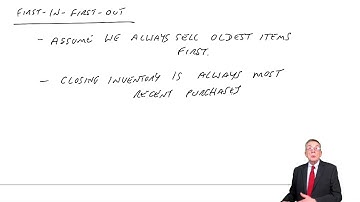 FIRST-IN-FIRST-OUT
- ASSUME WE ALWAYS SELL OLDEST ITEMS
FIRST.
- CLOSING INVENTORY IS ALWAYS MOST
RECENT PURCHASES